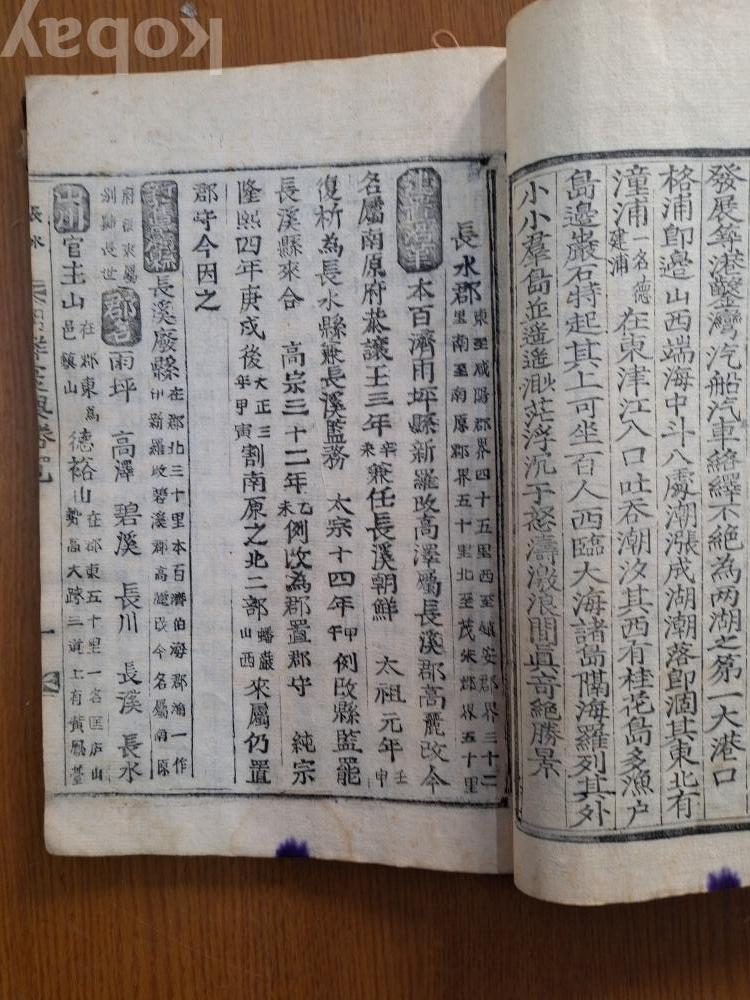 發展等港鑿灣汽船汽車絡繹不絕為两湖之第一大港口
格浦卽邊山西端海中斗入處潮漲成湖潮落卽涸其東北有
潼浦一名德建浦在東津江入口吐呑潮汐其西有桂花島多漁戶
島邊巖石特起其上可坐一百人西臨大海諸島隔海羅列其外
小小羣島並遙遙淼茫浮沉于怒濤激浪間眞奇絶勝景
長水郡東至咸陽郡界四十五里西至鎭安郡界三十二里南至南原郡界五十里北至茂朱郡界五十里
建置沿革本百濟雨坪縣新羅改高澤屬長溪郡高麗改今
名屬南原府恭讓王三年辛未兼任長溪朝鮮 太祖元年壬申
復析為長水縣兼長溪監務 太宗十四年甲午例改縣監罷
長溪縣來合 高宗三十二年乙未例改為郡置郡守 純宗
隆熙四年庚戍後大正三年甲寅割南原之北二部蟠巖山西來屬仍置
郡守今因之
長溪廢縣在郡北三十里本百濟伯海郡海一作伊新羅改碧溪郡高麗改今名屬南原
府後來屬別跡長世郡名雨坪 高澤 碧溪 長川 長溪 長水
山川官主山在郡東為邑鎭山德裕山在郡東五十里一名匡庐山勢高大跡三道上有黃鶴臺
長水
kobay